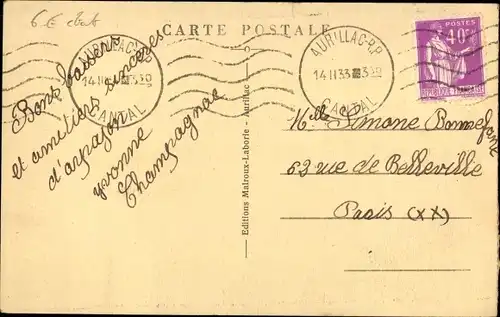 6€
CARTE POSTALE
AURILLAC
14 II 33 3 30
CANTAL
AURILLAC-R.P.
14 II 33 3 30
CANTAL
POSTES
40c
Bons baisers
et amitiés sincères
d'arpajon
yvonne
Champagnac
Editions Malroux-Laborie - Aurillac
Melle Simone Bonnefons
63 rue de Belleville
Paris (XX)